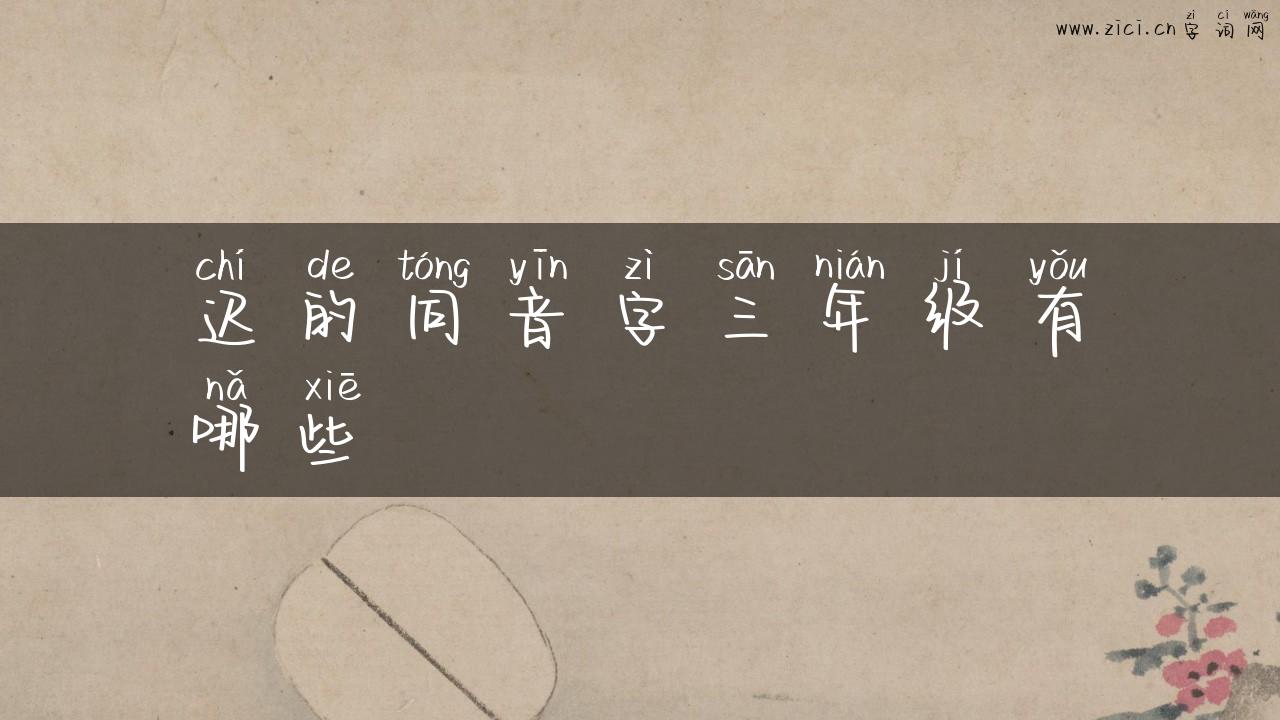 zì cí wǎng
www.zici.cn 字词网
chí de tóng yīn zì sān nián jí yǒu
迟的同音字三年级有
nǎ xiē
哪些